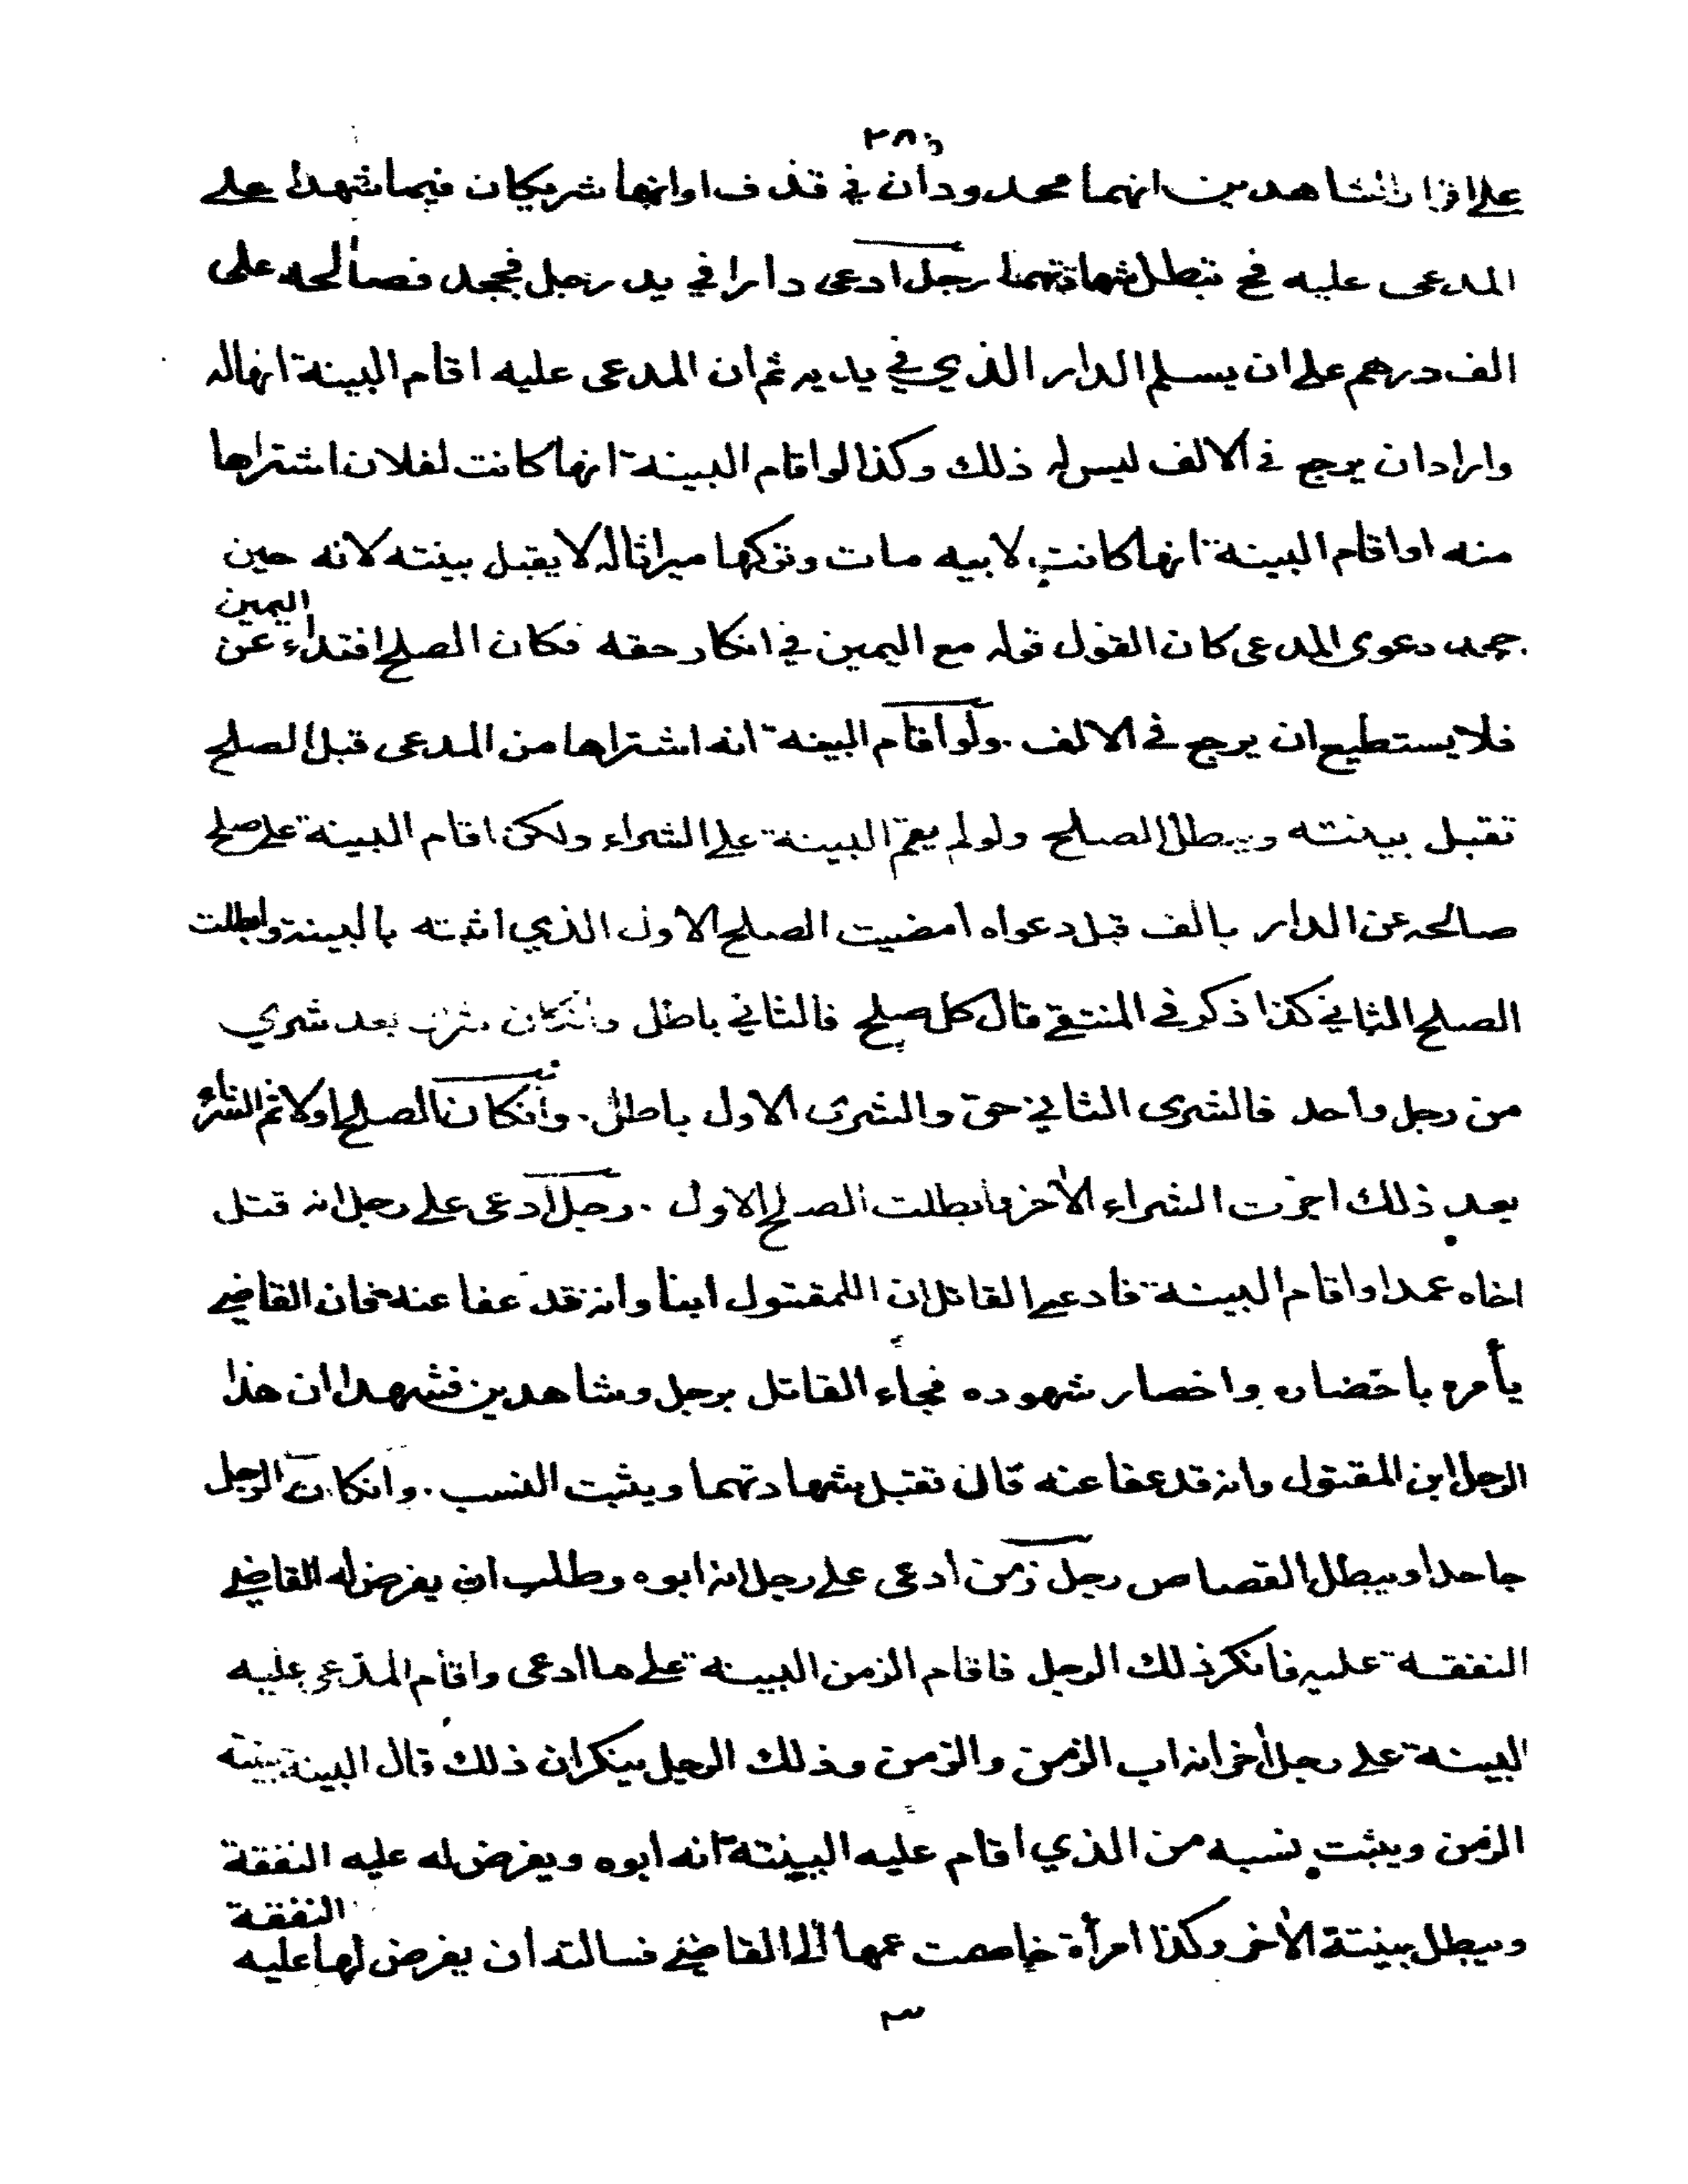 على اقرار الشاهدين انهما محدودان في قذف او انهما شريكان فيما شهدا على
المدعى عليه فح تبطل شهادتهما رجل ادعى دارا في يد رجل فجحد فصالحه على
الف درهم على ان يسلم الدار الذي في يديه ثم ان المدعى عليه اقام البينة انها له
واراد ان يرجع في الالف ليس له ذلك وكذا لو اقام البينة انها كانت لفلان اشتراها
منه او اقام البينة انها كانت لابيه مات وتركها ميراثا له لا يقبل بينته لانه حين
جحد دعوى المدعى كان القول قوله مع اليمين في انكار حقه فكان الصلح افتداء عن اليمين
فلا يستطيع ان يرجع في الالف . ولو اقام البينة انه اشتراها من المدعى قبل الصلح
تقبل بينته ويبطل الصلح ولو لم يقم البينة على الشراء ولكن اقام البينة على صلح
صالحه عن الدار بالف قبل دعواه امضيت الصلح الاول الذي اثبته بالبينة وابطلت
الصلح الثاني كذا ذكر في المنتقى قال كل صلح فالثاني باطل وانكان بعد شري
من رجل واحد فالشرى الثاني حق والشرى الاول باطل . وانكان الصلح اولا ثم الشراء
بعد ذلك اجزت الشراء الأخر وابطلت الصلح الاول . رجل ادعى على رجل انه قتل
اخاه عمدا واقام البينة فادعى القاتل ان اللمقتول ابنا وانه قد عفا عنه فان القاضي
يأمره باحضاره واحضار شهوده فجاء القاتل برجل وشاهدين فشهدا ان هذا
الرجل ابن المقتول وانه قد عفا عنه قال تقبل شهادتهما ويثبت النسب . وانكان الرجل
جاحدا ويبطل القصاص رجل زمن ادعى على رجل انه ابوه وطلب ان يفرض له القاضي
النفقة عليه فانكر ذلك الرجل فاقام الزمن البينة على ما ادعى واقام المدعى عليه
البينة على رجل أخر انه اب الزمن والزمن وذلك الرجل ينكران ذلك قال البينة بينة
الزمن ويثبت نسبه من الذي اقام عليه البينة انه ابوه ويفرض له عليه النفقة
ويبطل بينة الأخر وكذا امرأة خاصمت عمها الى القاضي فسالته ان يفرض لها عليه النفقة